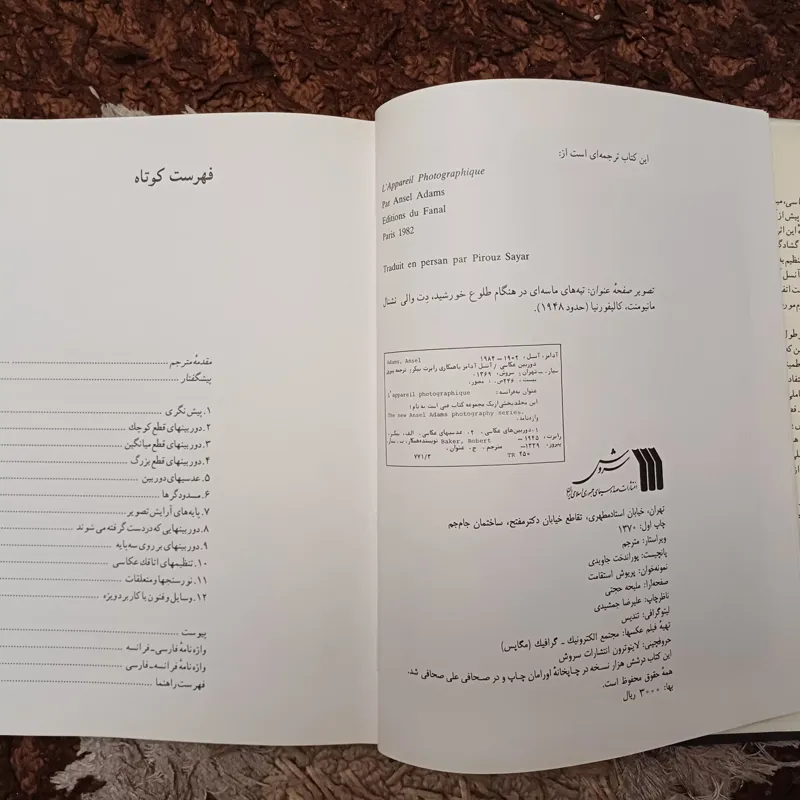 این کتاب ترجمه‌ای است از:
L'Appareil Photographique
Par Ansel Adams
Editions du Fanal
Paris 1982
Traduit en persan par Pirouz Sayar
تصویر صفحهٔ عنوان: تپه‌های ماسه‌ای در هنگام طلوع خورشید، دِت والی نشنال
مانیومنت، کالیفورنیا (حدود ۱۹۴۸).
Adams, Ansel
آدامز، آنسل، ۱۹۰۲ – ۱۹۸۴
دوربین عکاسی / آنسل آدامز باهمکاری رابرت بیکر؛ ترجمه پیروز
سیار. – تهران: سروش، ۱۳۶۹.
بیست، ۲۴۶ص.: مصور.
عنوان به‌فرانسه: L'appareil photographique
این مجلد بخشی از یک مجموعه کتاب فنی است به نام:
The new Ansel Adams photography series.
واژه‌نامه.
۱. دوربین‌های عکاسی. ۲. عدسیهای عکاسی. الف. بیکر،
رابرت، ۱۹۴۵ – Baker, Robert نویسنده همکار. ب. سیار،
پیروز، ۱۳۳۹– مترجم. ج. عنوان.
۷۷۱/۳ TR ۲۵۰
سروش
انتشارات صدا و سیمای جمهوری اسلامی ایران
تهران، خیابان استادمطهری، تقاطع خیابان دکترمفتح، ساختمان جام‌جم
چاپ اول: ۱۳۷۰
ویراستار: مترجم
پانچیست: پوراندخت جاویدی
نمونه‌خوان: پریوش استقامت
صفحه‌آرا: ملیحه حجتی
ناظرچاپ: علیرضا جمشیدی
لیتوگرافی: تندیس
تهیهٔ فیلم عکسها: مجتمع الکترونیک – گرافیک (مگاپس)
حروفچینی: لاینوترون انتشارات سروش
این کتاب درشش هزار نسخه در چاپخانهٔ اورامان چاپ و در صحافی علی صحافی شد.
همهٔ حقوق محفوظ است.
بها: ۳۰۰۰ ریال
فهرست کوتاه
مقدمهٔ مترجم
پیشگفتار
۱. پیش‌نگری
۲. دوربینهای قطع کوچک
۳. دوربینهای قطع میانگین
۴. دوربینهای قطع بزرگ
۵. عدسیهای دوربین
۶. مسدودگرها
۷. پایه‌های آرایش تصویر
۸. دوربینهایی که دردست گرفته می‌شوند
۹. دوربینهای بر روی سه‌پایه
۱۰. تنظیمهای اتاقک عکاسی
۱۱. نورسنجها و متعلقات
۱۲. وسایل و فنون با کاربرد ویژه
پیوست
واژه‌نامهٔ فارسی-فرانسه
واژه‌نامهٔ فرانسه-فارسی
فهرست راهنما